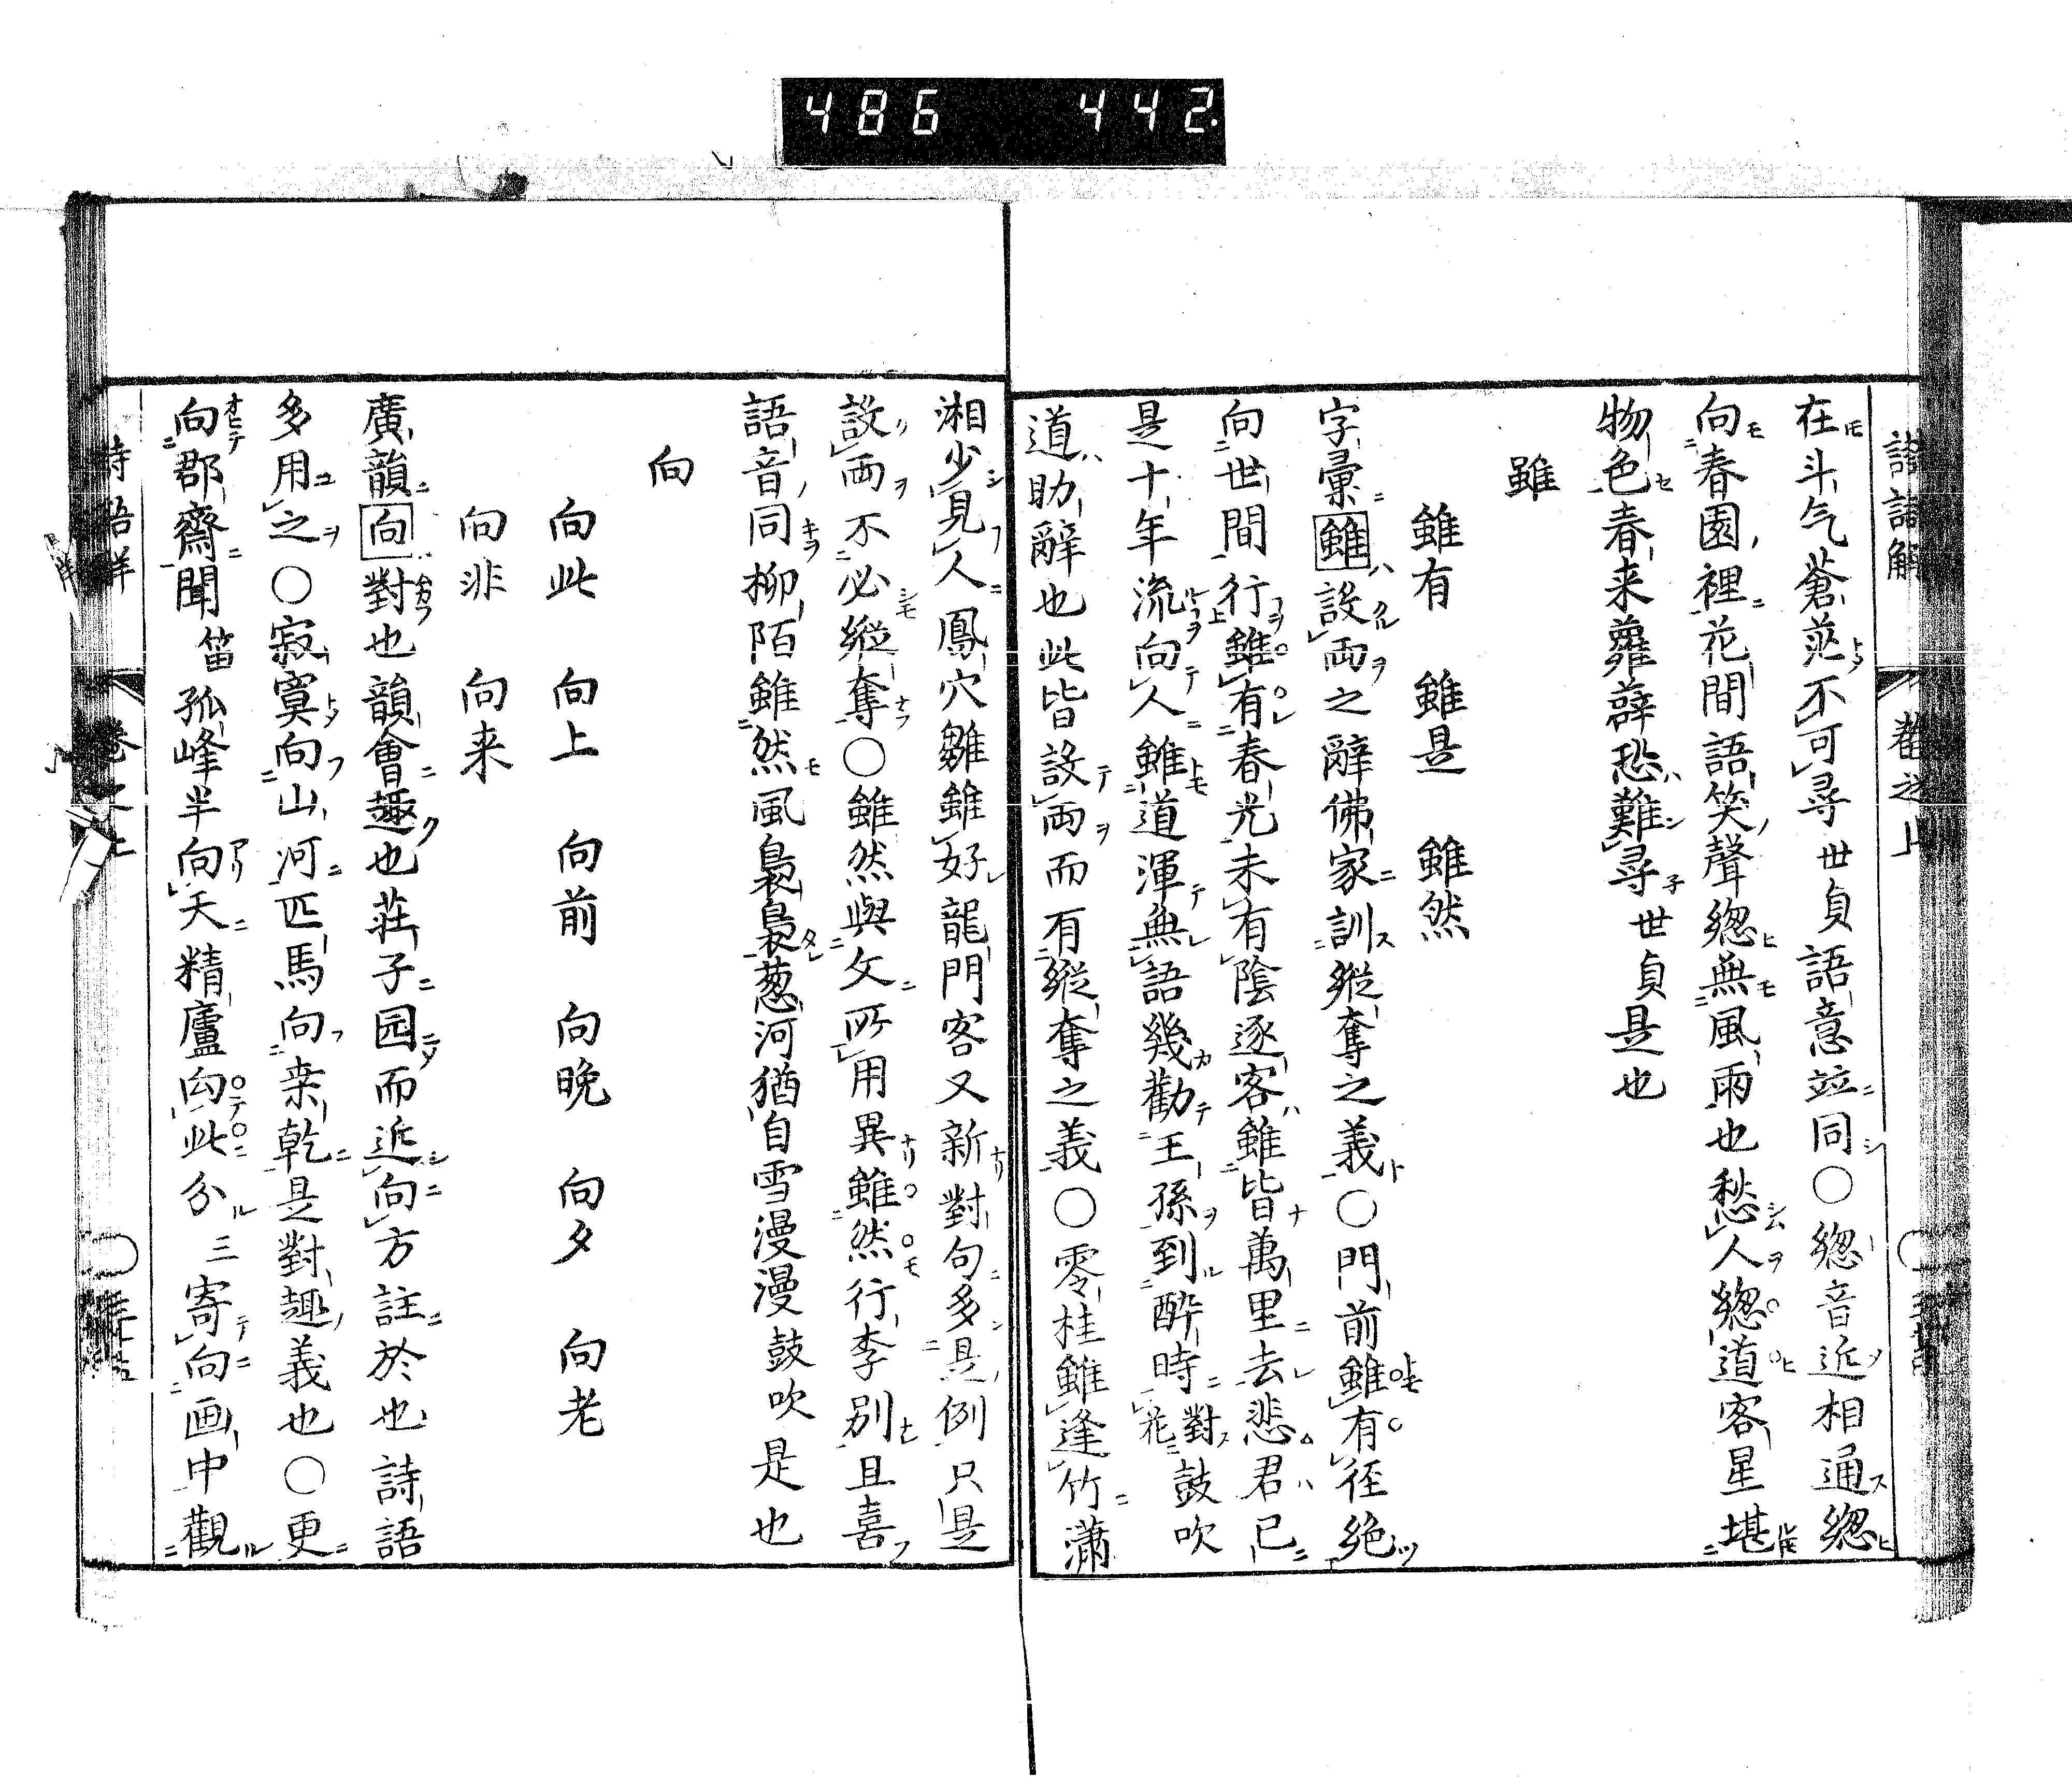 486 442.
詩語解 卷之上
在斗气蒼茫不可尋世貞語意竝同○緫音近相通緫
向春園裡花間語笑聲緫無風雨也愁人緫道客星堪
物色春来蘿薜恐難尋世貞是也
雖
雖有 雖是 雖然
字彙雖設兩之辭佛家訓縱奪之義○門前雖有徑絶
向世間行雖有春光未有陰逐客雖皆萬里去悲君已
是十年流向人雖道渾無語幾勸王孫到醉時對花鼓吹
道助辭也此皆設兩而有縱奪之義○零桂雖逢竹瀟
湘少見人鳳穴雛雖好龍門客又新對句多是例只是
設兩不必縱奪○雖然與攵所用異雖然行李別且喜
語音同柳陌雖然風裊裊葱河猶自雪漫漫鼓吹是也
向
向此 向上 向前 向晚 向夕 向老
向非 向来
廣韻向對也韻會趣也莊子园而近向方註於也詩語
多用之○寂寞向山河匹馬向桒乾是對趣義也○更
向郡齋聞笛孤峰半向天精廬向此分三寄向画中觀
詩語解 卷之上